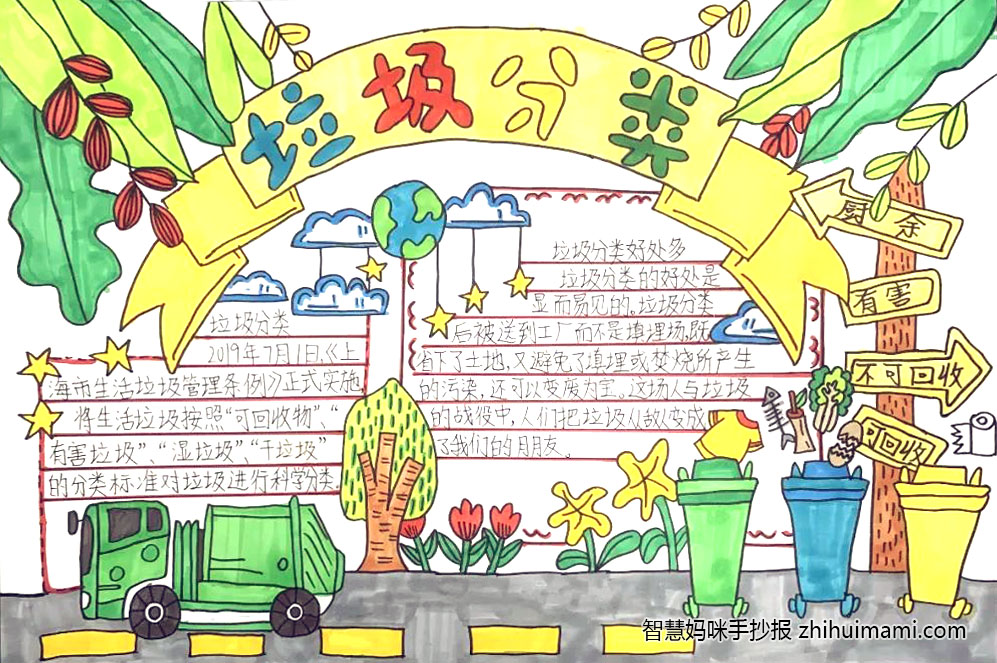 垃圾分类
垃圾分类
2019年7月1日，《上
海市生活垃圾管理条例》正式实施
将生活垃圾按照“可回收物”、“
有害垃圾”、“湿垃圾”、“干垃圾”
的分类标准对垃圾进行科学分类.
垃圾分类好处多
垃圾分类的好处是
显而易见的。垃圾分类
后被送到工厂而不是填埋场，既
省下了土地，又避免了填埋或焚烧所产生
的污染，还可以变废为宝。这场人与垃圾
的战役中，人们把垃圾从敌人变成
了我们的朋友。
厨余
有害
不可回收
可回收
智慧妈咪手抄报 zhihuimami.com